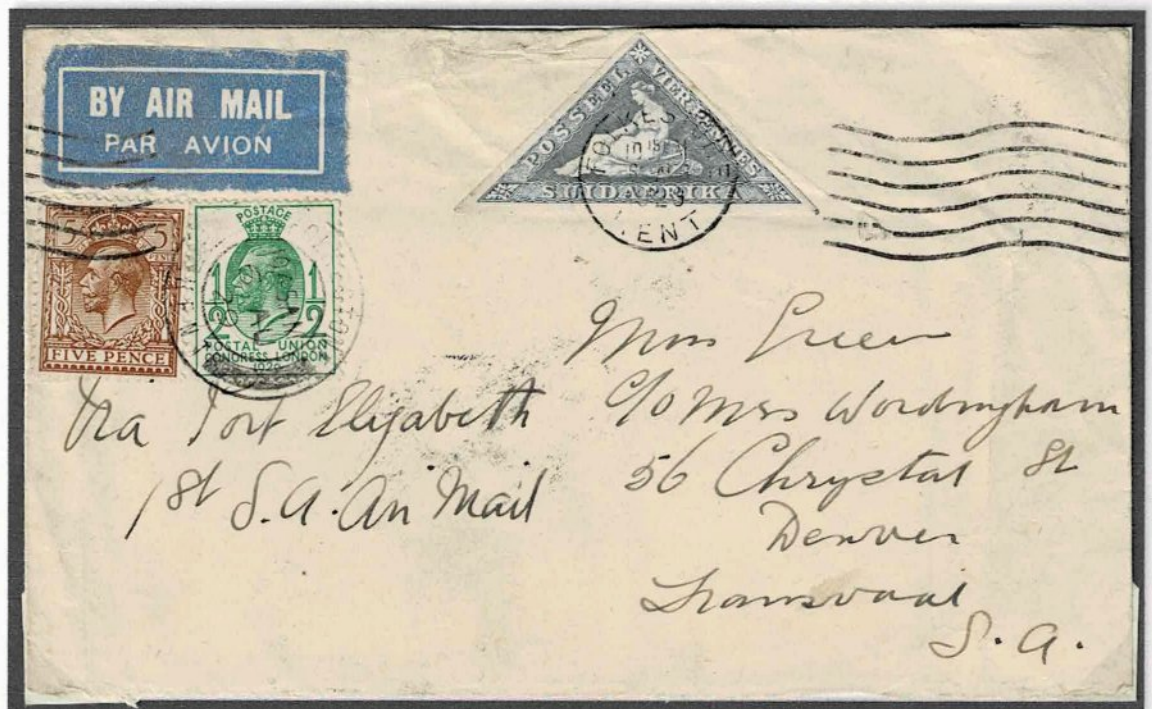 BY AIR MAIL
PAR AVION
POSSEEL VIER PENNIES
SUIDAFRIK
FOLKESTONE
KENT
5 5
FIVE PENCE
POSTAGE
1/2 1/2
POSTAL UNION
CONGRESS LONDON
1929
Via Port Elizabeth
1st S.A. Air Mail
Green
C/O Mrs Wordingham
56 Chrystal St
Denver
Transvaal
S. A.